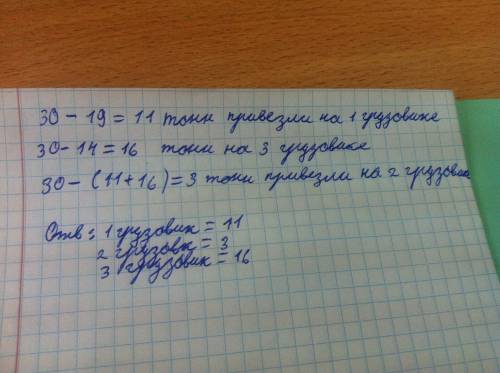 30 - 19 = 11 тонн привезли на 1 грузовике
30 - 14 = 16 тонн на 3 грузовике
30 - (11 + 16) = 3 тонн привезли на 2 грузовик
Отв: 1 грузовик = 11
2 грузовк = 3
3 грузовик = 16